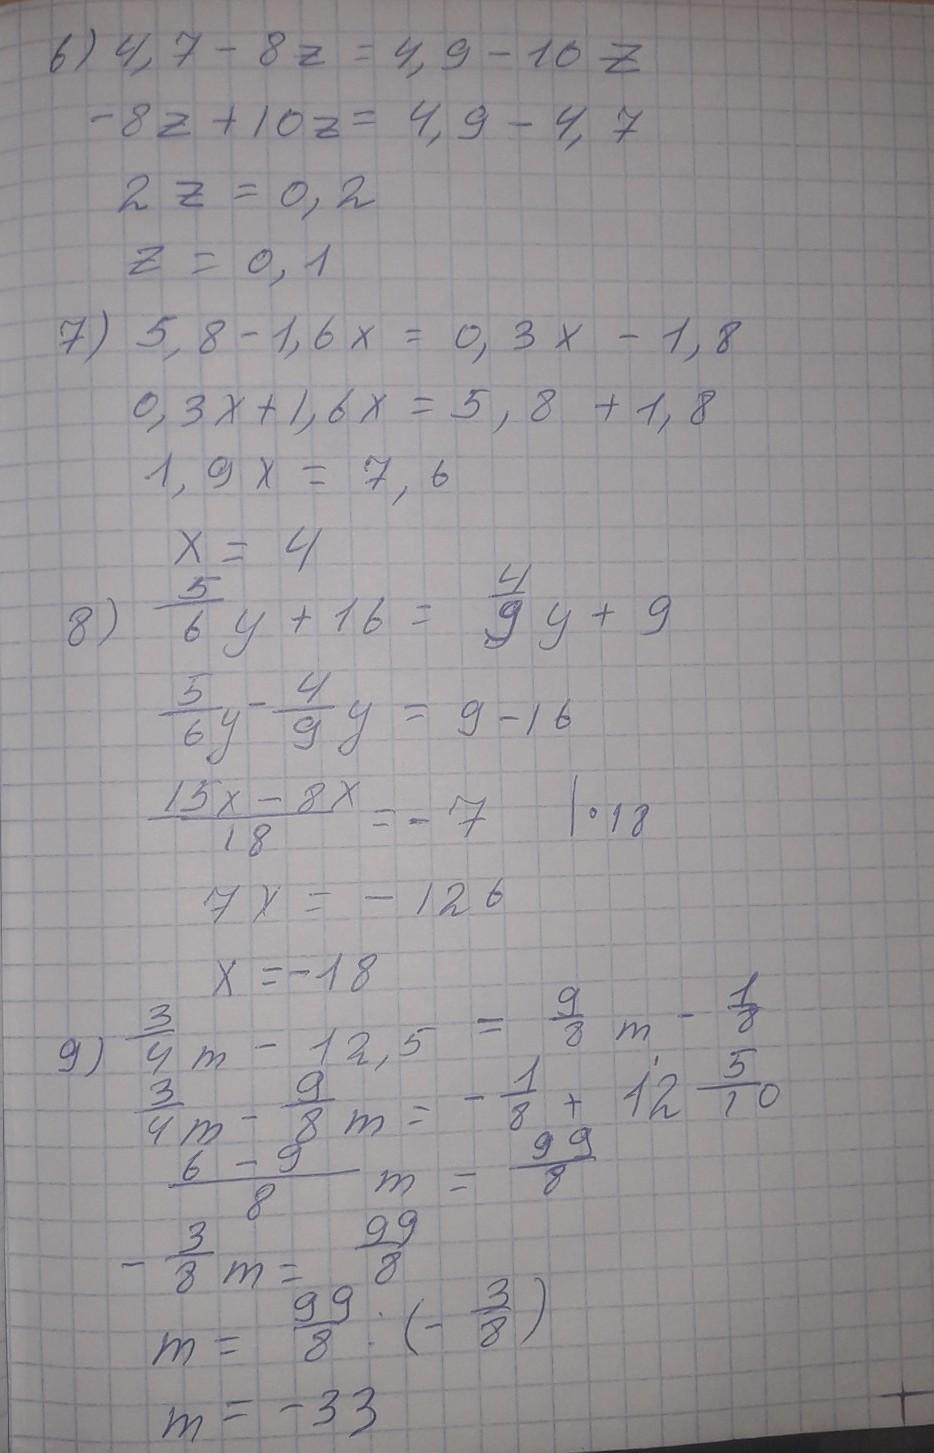 6) 4,7 - 8z = 4,9 - 10z
-8z + 10z = 4,9 - 4,7
2z = 0,2
z = 0,1
7) 5,8 - 1,6x = 0,3x - 1,8
0,3x + 1,6x = 5,8 + 1,8
1,9x = 7,6
x = 4
8) 5/6 y + 16 = 4/9 y + 9
5/6 y - 4/9 y = 9 - 16
(15x - 8x)/18 = -7 |·18
7x = -126
x = -18
9) 3/4 m - 12,5 = 9/8 m - 1/8
3/4 m - 9/8 m = -1/8 + 12 5/10
(6 - 9)/8 m = 99/8
-3/8 m = 99/8
m = 99/8 : (-3/8)
m = -33